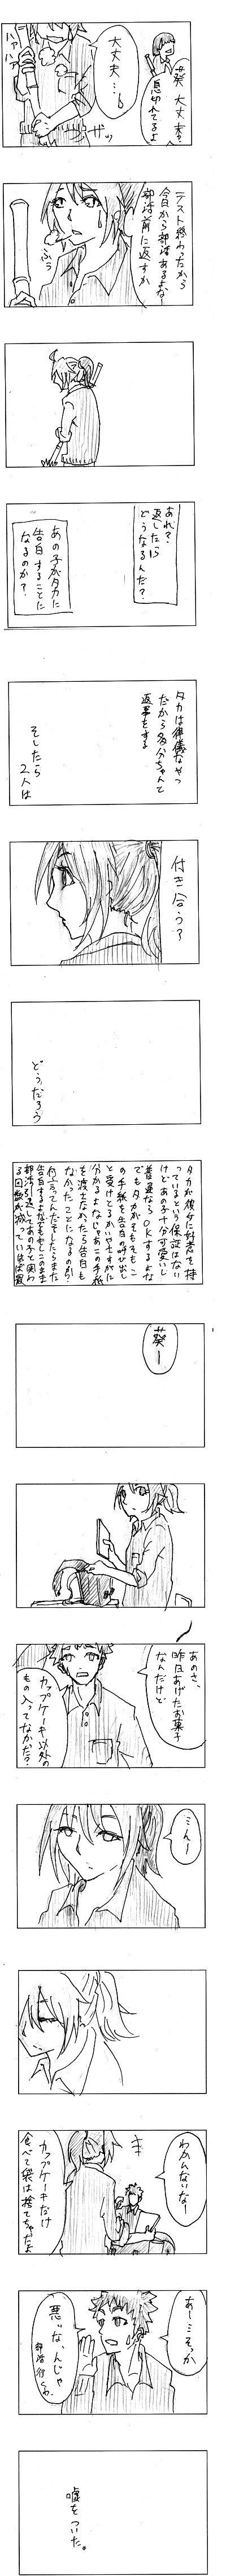 葵 大丈夫?
息切れてるよ
大丈夫…。
ハァハァ
テスト終わったから
今日から部活あるよなー
部活前に返すか
ふぅ
あれ?
返したら
どうなるんだ?
あの子がタカに
告白することに
なるのか?
タカは律儀なやつ
だから多分ちゃんと
返事をする
そしたら
2人は
付き合う?
どうだろう
タカが彼女に好意を持
っているという保証はない
けどあの子十分可愛いし
普通ならOKするよな
でもタカがそもそもこ
の手紙を告白の呼び出し
と受けとるかいやさすがに
分かるよなじゃあこの手紙
を渡さなかったら告白も
なかったことになるのか
葵ー
あのさ、
昨日あげたお菓子
なんだけど
カップケーキ以外の
もの入ってなかった?
ミんー
わかんないなー
カップケーキだけ
食べて袋は捨てちゃったよ
あーミそっか
悪いな、んじゃ
部活行くわ
嘘をついた。